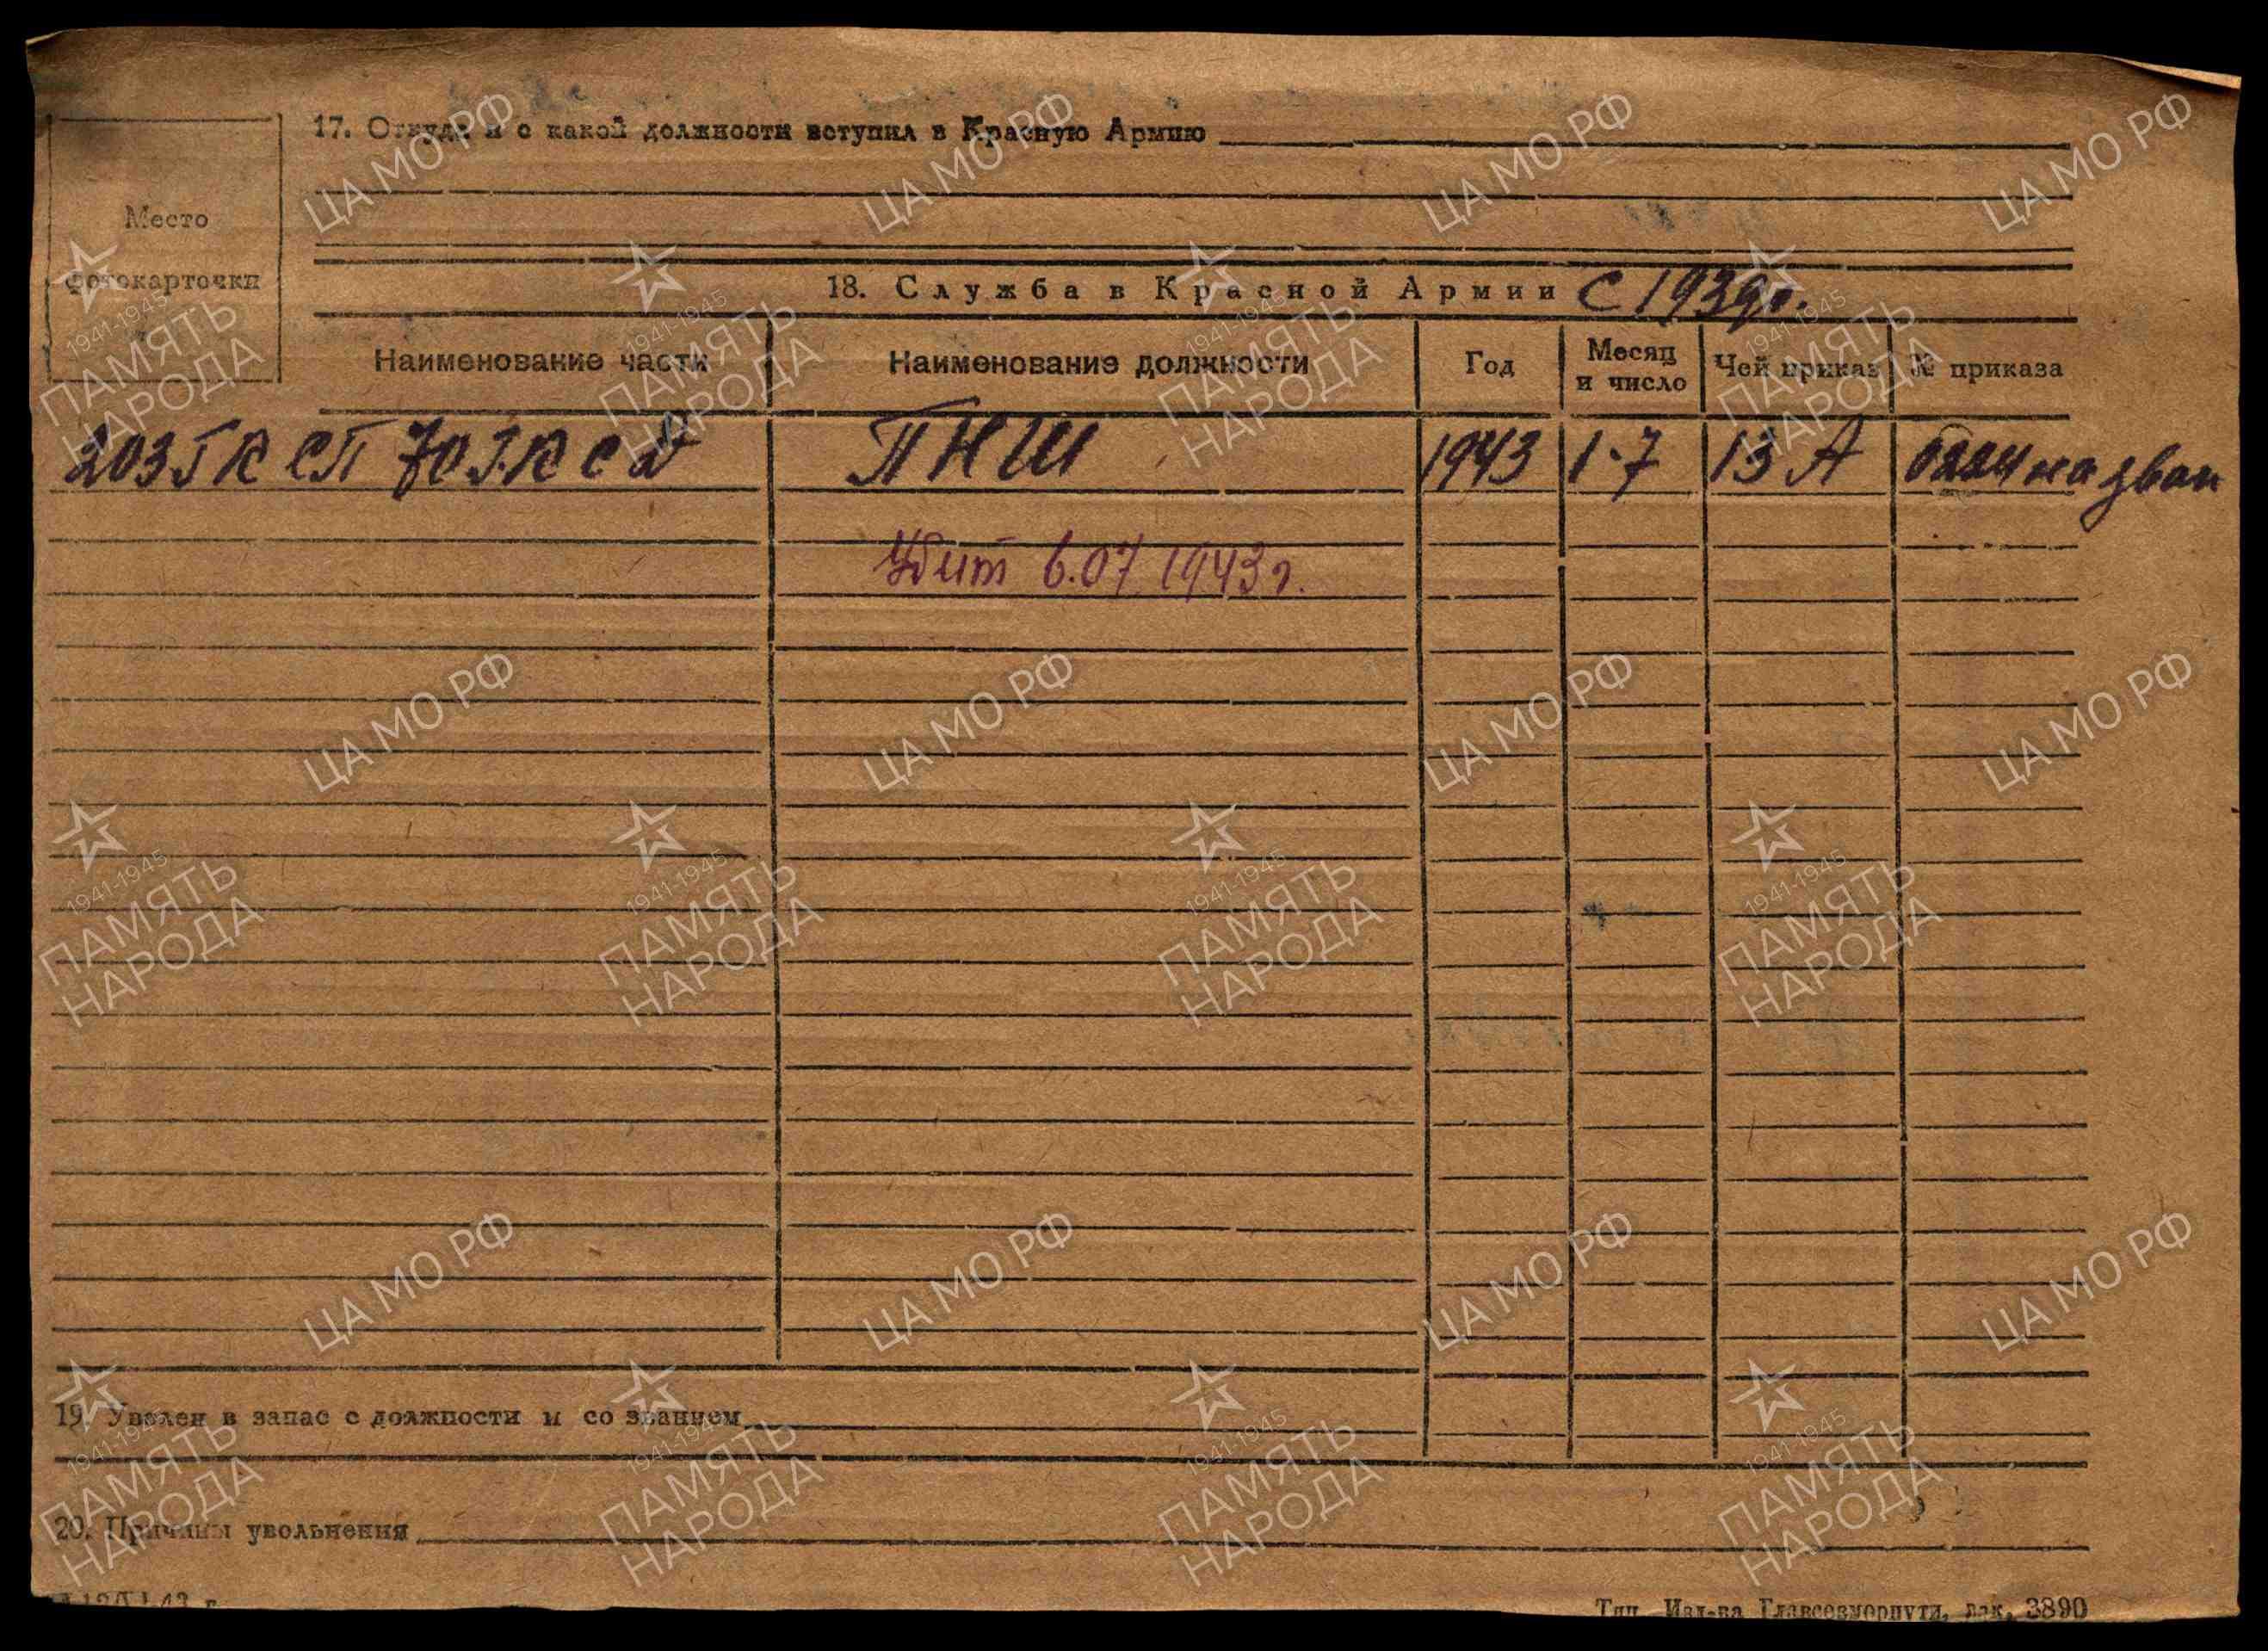 17. Откуда и с какой должности вступил в Красную Армию
Место
фотокарточки
18. Служба в Красной Армии С 1939г.
Наименование части
Наименование должности
Год
Месяц
и число
Чей приказ
№ приказа
203 ГК СП 70 Г.К С Д
ПНШ
1943
1.7
13 А
022н на зван
Убит 6.07.1943г.
19. Уволен в запас с должности и со званием
20. Причины увольнения
Тип. Изд-ва Главсевморпути, зак. 3890
ЦА МО РФ
1941-1945
ПАМЯТЬ
НАРОДА